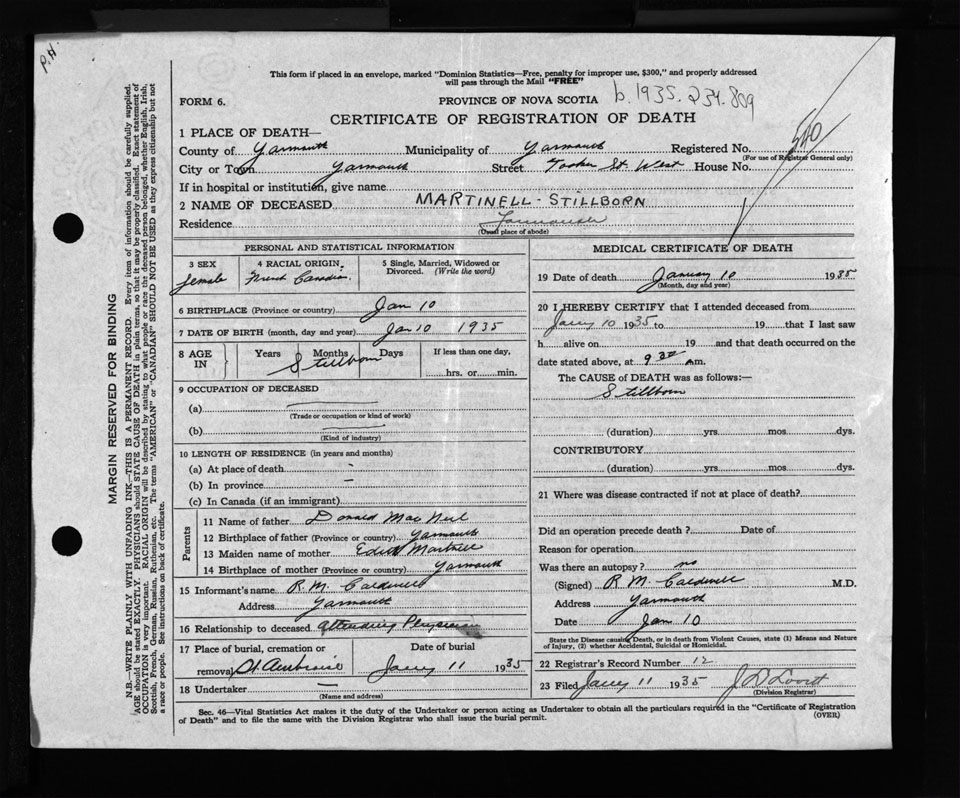 P.H.
This form if placed in an envelope, marked "Dominion Statistics—Free, penalty for improper use, $300," and properly addressed
will pass through the Mail "FREE"
FORM 6.
PROVINCE OF NOVA SCOTIA b.1935.234.809
CERTIFICATE OF REGISTRATION OF DEATH
1 PLACE OF DEATH—
540
County of Yarmouth Municipality of Yarmouth Registered No.
(For use of Registrar General only)
City or Town Yarmouth Street Tooker St. West House No.
If in hospital or institution, give name
2 NAME OF DECEASED MARTINELL - STILLBORN
Residence Yarmouth
(Usual place of abode)
PERSONAL AND STATISTICAL INFORMATION
3 SEX
female
4 RACIAL ORIGIN:
French Canadian
5 Single, Married, Widowed or
Divorced. (Write the word)
6 BIRTHPLACE (Province or country) Jan 10
7 DATE OF BIRTH (month, day and year) Jan 10 1935
8 AGE
IN
Years Months Days
Stillborn
If less than one day,
hrs. or min.
9 OCCUPATION OF DECEASED
(a)
(Trade or occupation or kind of work)
(b)
(Kind of industry)
10 LENGTH OF RESIDENCE (in years and months)
(a) At place of death -
(b) In province —
(c) In Canada (if an immigrant)
Parents
11 Name of father Donald Mac Neil
12 Birthplace of father (Province or country) Yarmouth
13 Maiden name of mother Edith
14 Birthplace of mother (Province or country) Yarmouth
15 Informant's name R. M. Caldwell
Address Yarmouth
16 Relationship to deceased Attending Physician
17 Place of burial, cremation or
removal St. Ambroise
Date of burial
Jany 11 1935
18 Undertaker —
(Name and address)
MEDICAL CERTIFICATE OF DEATH
19 Date of death January 10 1935
(Month, day and year)
20 I HEREBY CERTIFY that I attended deceased from
Jany 10 1935 to 19 that I last saw
h alive on 19 and that death occurred on the
date stated above, at 9.30 A m.
The CAUSE of DEATH was as follows:—
Stillborn
(duration) yrs mos dys.
CONTRIBUTORY
(duration) yrs mos dys.
21 Where was disease contracted if not at place of death?
Did an operation precede death ? Date of
Reason for operation
Was there an autopsy ? no
(Signed) R. M. Caldwell M.D.
Address Yarmouth
Date Jan 10
State the Disease causing Death, or in death from Violent Causes, state (1) Means and Nature
of Injury, (2) whether Accidental, Suicidal or Homicidal.
22 Registrar's Record Number 12
23 Filed Jany 11 1935
(Division Registrar)
Sec. 46—Vital Statistics Act makes it the duty of the Undertaker or person acting as Undertaker to obtain all the particulars required in the "Certificate of Registration
of Death" and to file the same with the Division Registrar who shall issue the burial permit.
(OVER)
MARGIN RESERVED FOR BINDING
N.B.—WRITE PLAINLY WITH UNFADING INK—THIS IS A PERMANENT RECORD. Every item of information should be carefully supplied.
AGE should be stated EXACTLY. PHYSICIANS should STATE CAUSE OF DEATH in plain terms, so that it may be properly classified. Exact statement of
OCCUPATION is very important. RACIAL ORIGIN will be described by stating to what people or race the deceased person belonged, whether English, Irish,
Scottish, French, German, Russian, Ruthenian, etc. The terms "AMERICAN" or "CANADIAN" SHOULD NOT BE USED as they express citizenship but not
a race or people. See instructions on back of certificate.